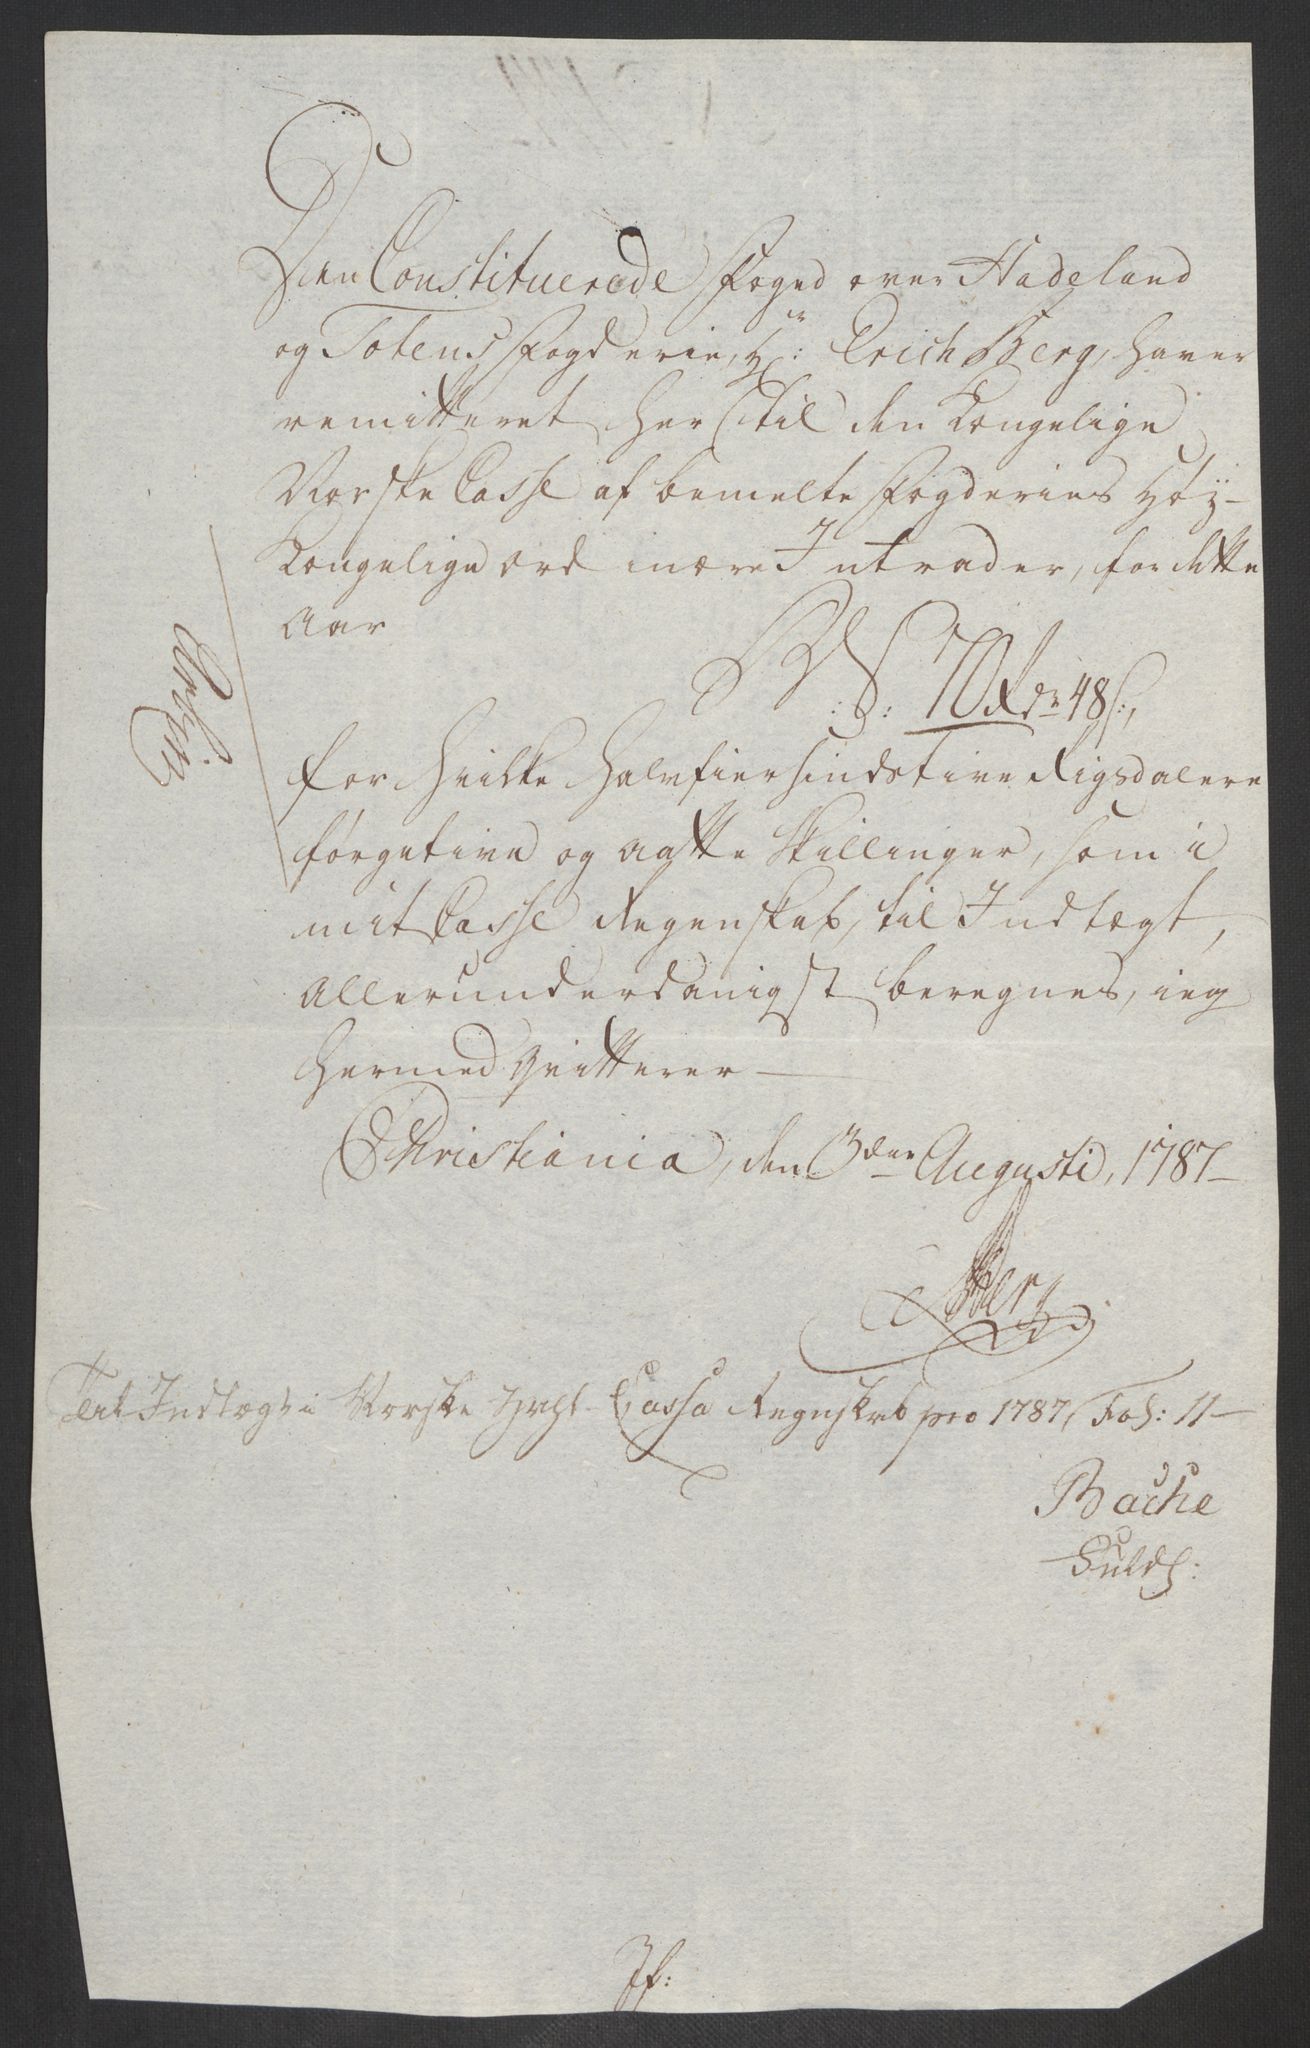 Den Constituerede Foged over Hadeland
og Totens Fogderie, Hr: Erich Berg, haver
remitteret her til den Kongelige
Norske Casse af bemelte Fogderies Höÿ-
Kongelige ordinære Intrader, for dette
Aar
70 Rdr 48 s:,
for hvilke halvfiersindstive Rigsdalere
førgetive og aatte Skillinger, som i
mit Casse Regenskab, til Indtægt,
allerunderdanigst beregnes, ieg
hermed qvitterer —
Christiania, den 3den Augusti, 1787 —
Berg
Indtægt i Norske Cassa Regnskab pro 1787, Fol: 11 —
Bache